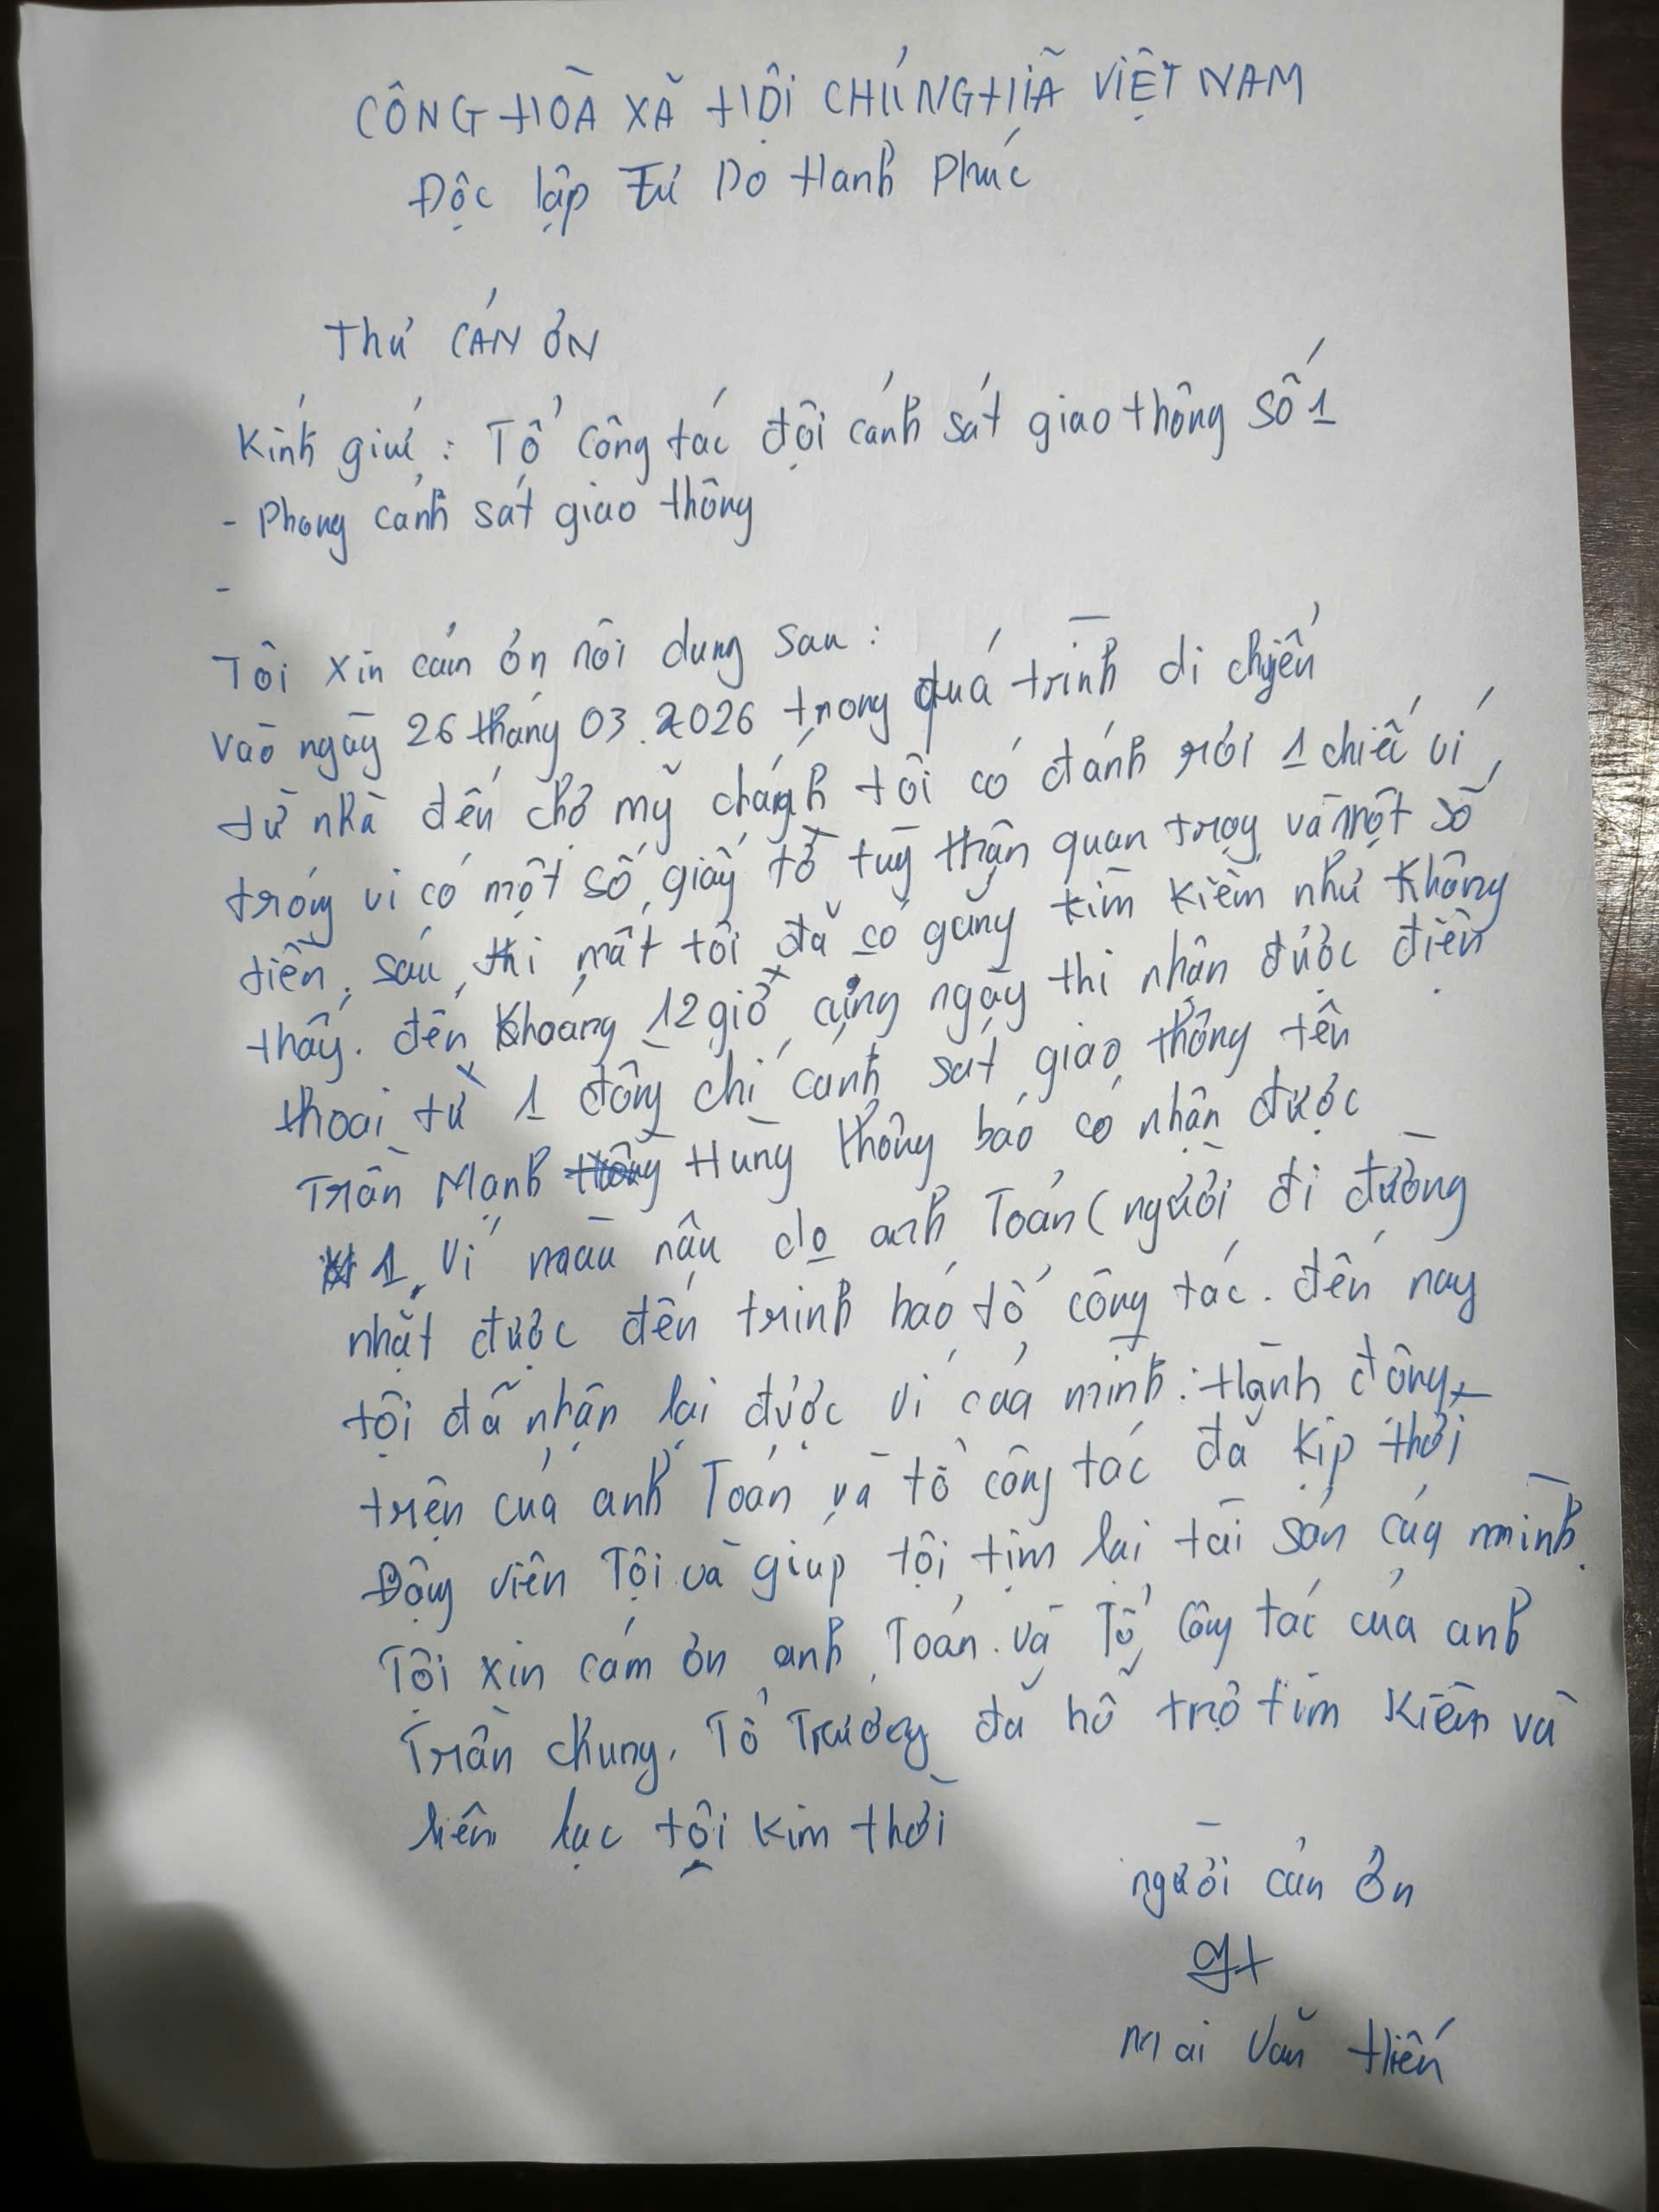 CÔNG HÒA XÃ HỘI CHỦ NGHĨA VIỆT NAM
Độc lập Tự Do Hanh Phúc
Thư CẢN ƠN
Kính giử : Tổ công tác đội cảnh sát giao thông số 1
- Phong cảnh sát giao thông
-
Tôi xin cản ơn nôi dung sau :
Vào ngày 26 tháng 03.2026 trong quá trình di chyển
từ nhà đến chợ mỹ chánh tôi có đánh rơi 1 chiếc ví,
tróng ví có một số giấy tờ tuỳ thận quan trọy và một số
tiền, sáu thi mất tôi đã cố găng tìm kiếm như không
thấy. đến khoảng 12 giờ cùng ngày thì nhân được điện
thoai từ 1 đồng chí cảnh sát giao thông tên
Trần Mạnh Hùng thông báo có nhận được
1 ví màu nâu do anh Toán (người đi đường
nhặt được đến trình báo tổ công tác. đến nay
tội đã nhận lại được ví của mình. Hành đông
trện của anh Toán và tổ công tác đã kịp thời
Động viên Tội và giúp tội tìm lại tài sản của mình.
Tội xin cám ơn anh Toán. và Tổ công tác của anh
Trần chung. Tổ Trưởng đã hỗ trợ tìm kiếm và
liên lạc tội kim thời
người cản ơn
Mai Văn Hiến